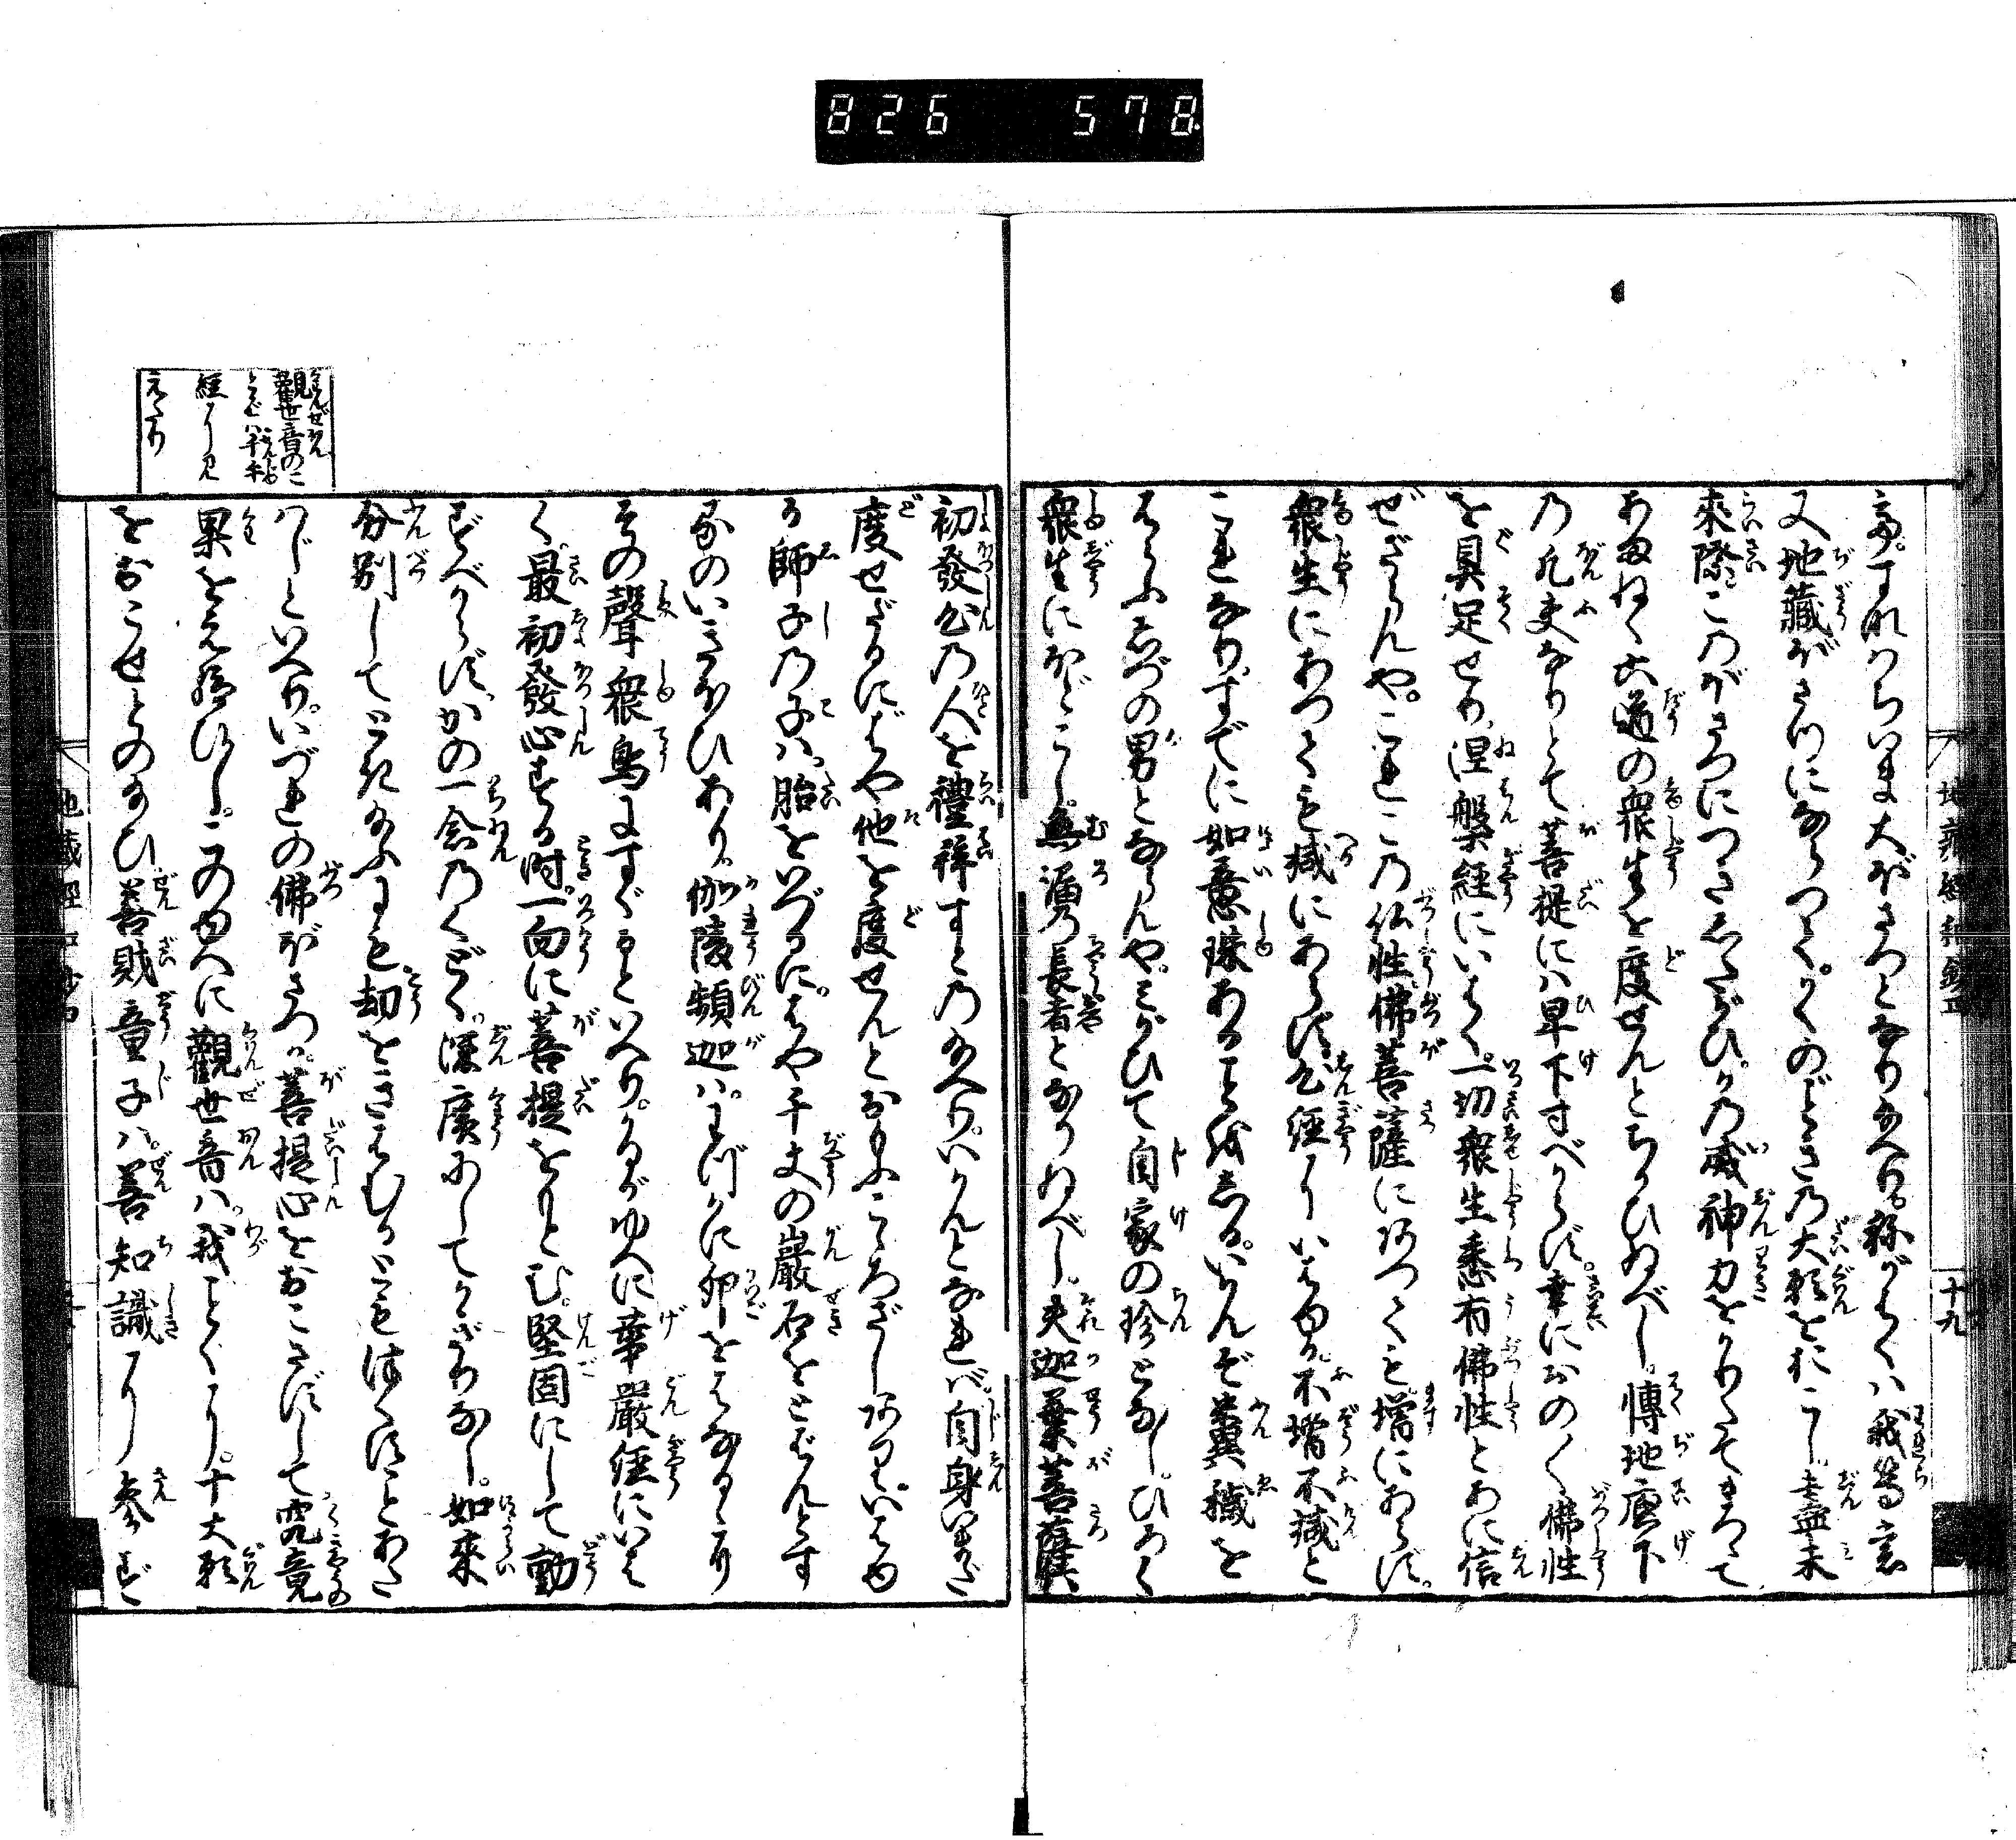 826 578
十九
斎。すなハちいま大ぼさつとなり給へり。ねがハくハ我等意
又地蔵ぼさつにならつて。かくのごとき乃大願をおこし。盡未
來際。このぼさつにつきしたがひ。か乃威神力をかりたてまつて
あまねく六道の衆生を度せんとちかひぬべし。愽地底下
乃凡夫なりとて菩提にハ卑下すべからず。幸におの〱佛性
を具足せり。涅槃経にいはく。一切衆生悉有佛性とあに信
ぜざらんや。これこ乃仏性佛菩薩にあつても増にあらず。
衆生にあつても減にあらず。心経にいはゆる。不増不減と
これなり。すでに如意珠あることをしる。いかんぞ糞穢を
はらふしづの男とならんや。ねがひて自家の珍となし。ひろく
衆生にほどこし。無漏乃長者となりぬべし。夫迦葉菩薩
初發心乃人を禮拝すとの給へり。いかんとなれば。自身いまだ
度せざるにはや他を度せんとおもふこゝろざしあれば。いはゆ
る師子乃子ハ。胎をいづるに。はや千丈の巌石をとばんとす
るのいきほひあり。伽陵頻迦ハ。わづかに卵をはなるゝに
その聲衆鳥にすぐるといへり。かるがゆへに華嚴経にいは
く。最初發心する時。一向に菩提をもとむ。堅固にして動
ずべからず。かの一念乃くどく。深廣にしてかぎりなし。如來
分別してときたまふとも。劫をきはむるともつくさずとあき
らけしといへり。いづれの佛ぼさつか。菩提心をおこさずして究竟
果をえ給ひし。このゆへに觀世音ハ。我ごとくに。十大願
をおこせとの給ひ。善財童子ハ。善知識に參ず
觀世音のこ
とば八千手
経に見
えたり